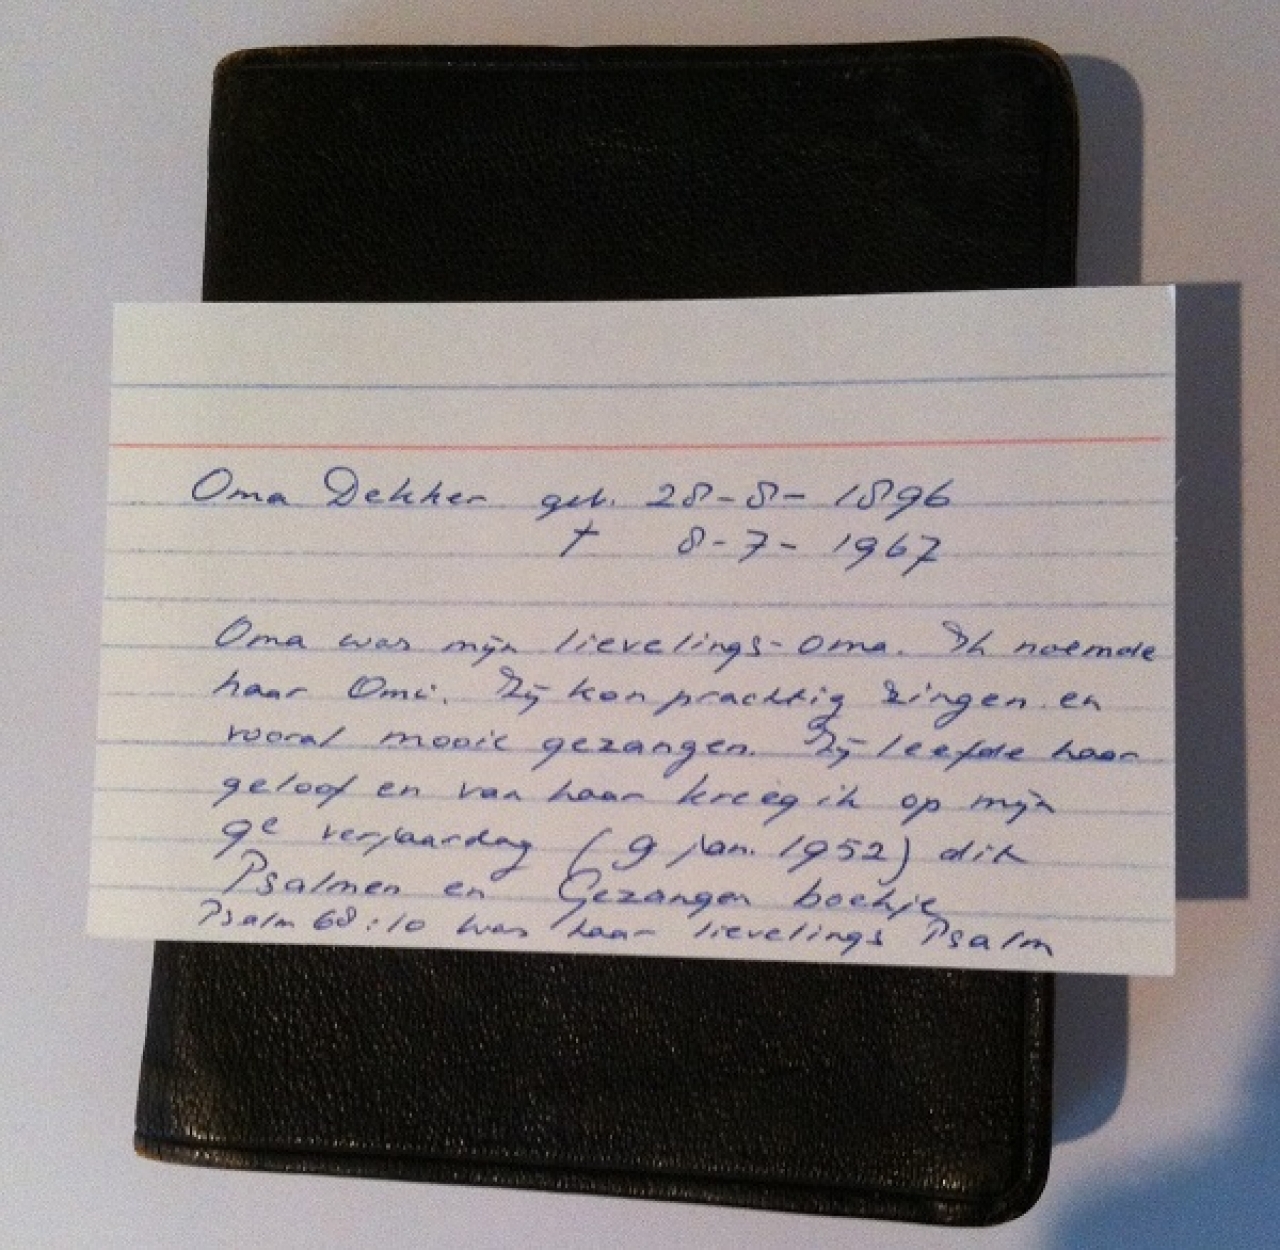 Oma Dekker geb. 28-8-1896
† 8-7-1967
Oma was mijn lievelings-oma. Ik noemde
haar Omi. Zij kon prachtig zingen en
vooral mooie gezangen. Zij leefde haar
geloof en van haar kreeg ik op mijn
9e verjaardag (9 jan. 1952) dit
Psalmen en Gezangen boekje
Psalm 68:10 was haar lievelings Psalm